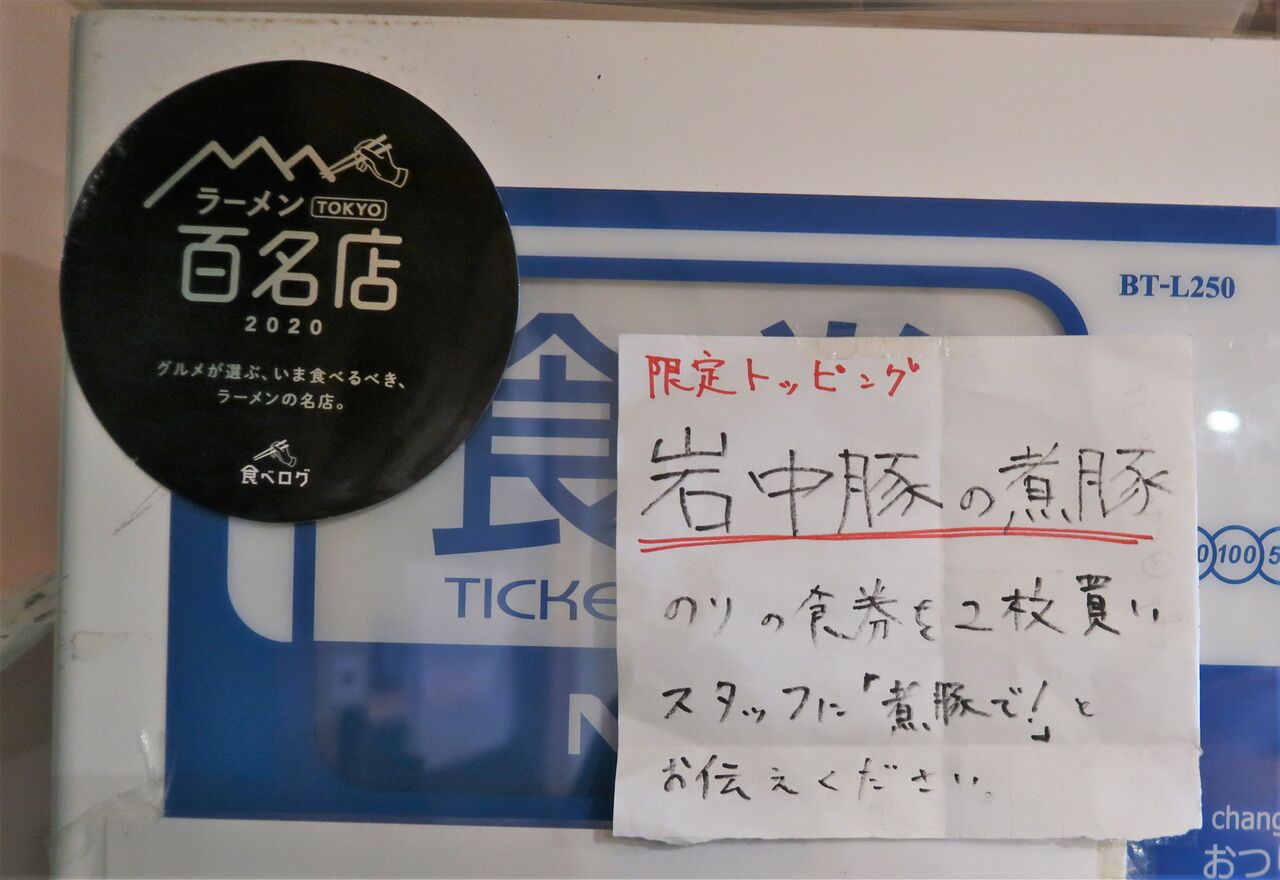 ラーメン TOKYO
百名店
2020
グルメが選ぶ、いま食べるべき、
ラーメンの名店。
食べログ
BT-L250
食
TICKE
N
限定トッピング
岩中豚の煮豚
のりの食券を2枚買い
スタッフに「煮豚で!」と
お伝えください。
100
chang
おつ